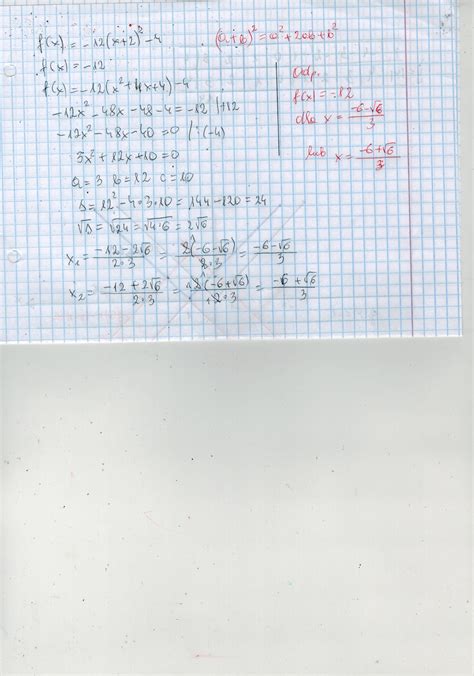 f(x) = -12(x+2)² -4
(a+b)² = a² + 2ab + b²
f(x) = -12
f(x) = -12(x² + 4x + 4) - 4
-12x² - 48x - 48 - 4 = -12 | +12
-12x² - 48x - 40 = 0 /:(-4)
3x² + 12x + 10 = 0
a = 3 b = 12 c = 10
Δ = 12² - 4·3·10 = 144 - 120 = 24
√Δ = √24 = √4·6 = 2√6
x₁ = -12-2√6/2·3 = 2(-6-√6)/2·3 = -6-√6/3
x₂ = -12+2√6/2·3 = 2(-6+√6)/2·3 = -6+√6/3
Odp.
f(x) = -12
dla x = -6-√6/3
lub x = -6+√6/3